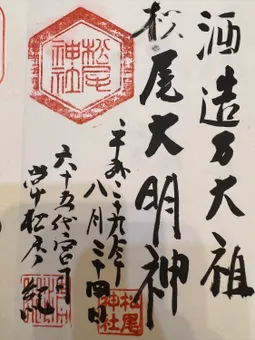 酒造乃大祖
松尾大明神
松尾神社
平成二十九年
八月二十四日
六十五代宮司
松尾神社